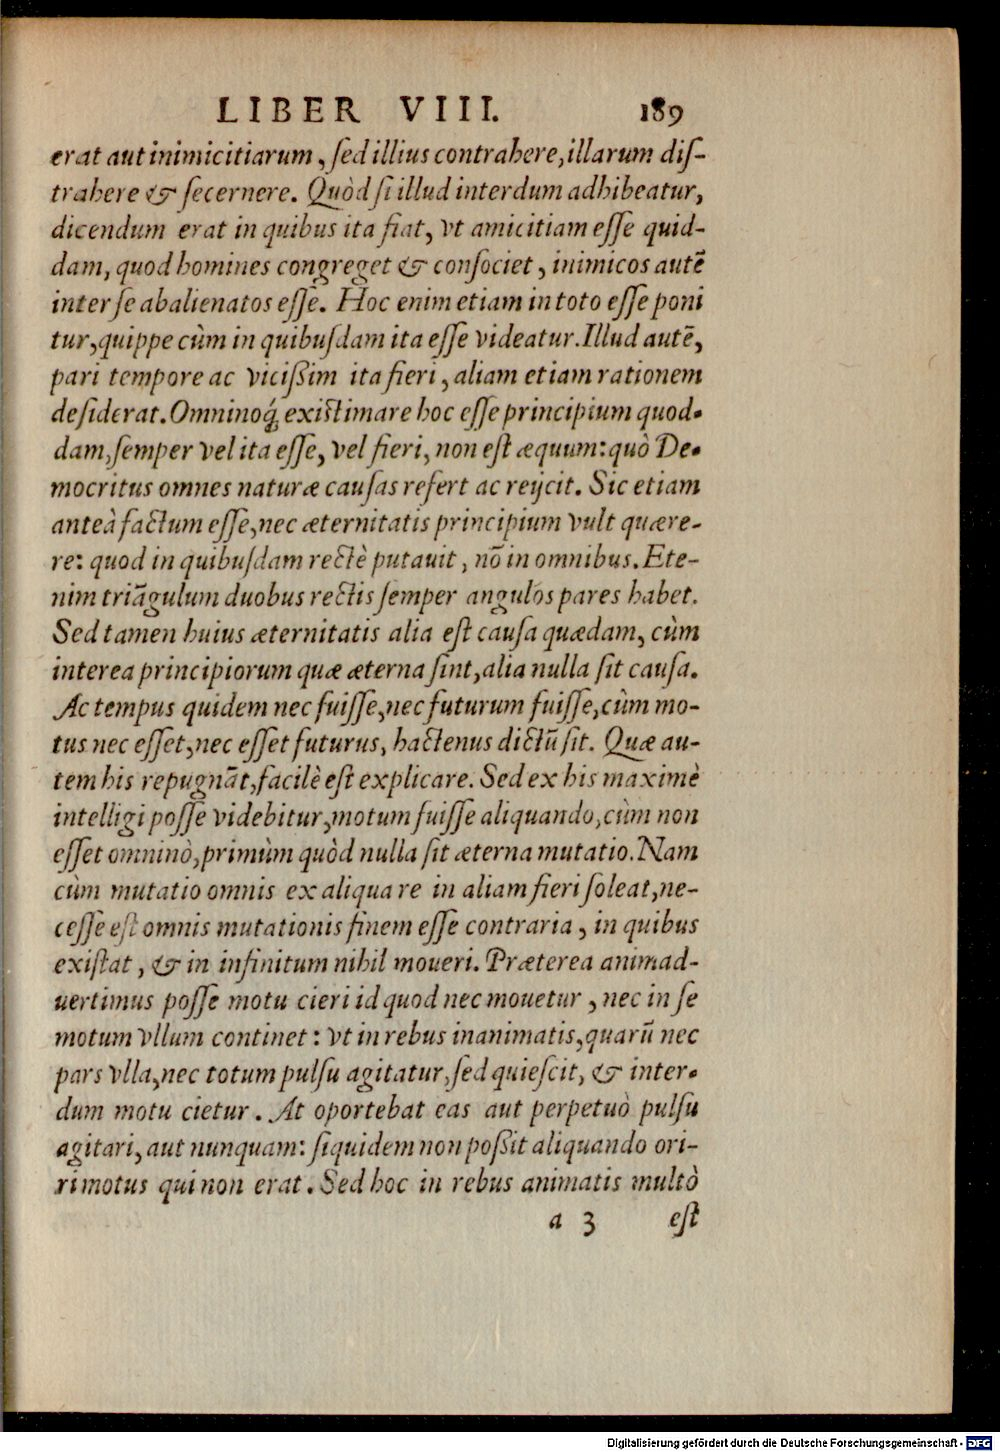 LIBER VIII. 189
erat aut inimicitiarum, sed illius contrahere, illarum dis-
trahere & secernere. Quòd si illud interdum adhibeatur,
dicendum erat in quibus ita fiat, vt amicitiam esse quid-
dam, quod homines congreget & consociet, inimicos autē
inter se abalienatos esse. Hoc enim etiam in toto esse poni
tur, quippe cùm in quibusdam ita esse videatur. Illud autē,
pari tempore ac vicißim ita fieri, aliam etiam rationem
desiderat. Omninoq́; existimare hoc esse principium quod-
dam, semper vel ita esse, vel fieri, non est æquum: quò De-
mocritus omnes naturæ causas refert ac reijcit. Sic etiam
anteà factum esse, nec æternitatis principium vult quære-
re: quod in quibusdam rectè putauit, nō in omnibus. Ete-
nim triāgulum duobus rectis semper angulos pares habet.
Sed tamen huius æternitatis alia est causa quædam, cùm
interea principiorum quæ æterna sint, alia nulla sit causa.
Ac tempus quidem nec fuisse, nec futurum fuisse, cùm mo-
tus nec esset, nec esset futurus, hactenus dictū sit. Quæ au-
tem his repugnāt, facilè est explicare. Sed ex his maximè
intelligi posse videbitur, motum fuisse aliquando, cùm non
esset omninò, primùm quòd nulla sit æterna mutatio. Nam
cùm mutatio omnis ex aliqua re in aliam fieri soleat, ne-
cesse est omnis mutationis finem esse contraria, in quibus
existat, & in infinitum nihil moueri. Præterea animad-
uertimus posse motu cieri id quod nec mouetur, nec in se
motum vllum continet: vt in rebus inanimatis, quarū nec
pars vlla, nec totum pulsu agitatur, sed quiescit, & inter-
dum motu cietur. At oportebat eas aut perpetuò pulsu
agitari, aut nunquam: siquidem non poßit aliquando ori-
ri motus qui non erat. Sed hoc in rebus animatis multò
a 3 est
Digitalisierung gefördert durch die Deutsche Forschungsgemeinschaft - DFG